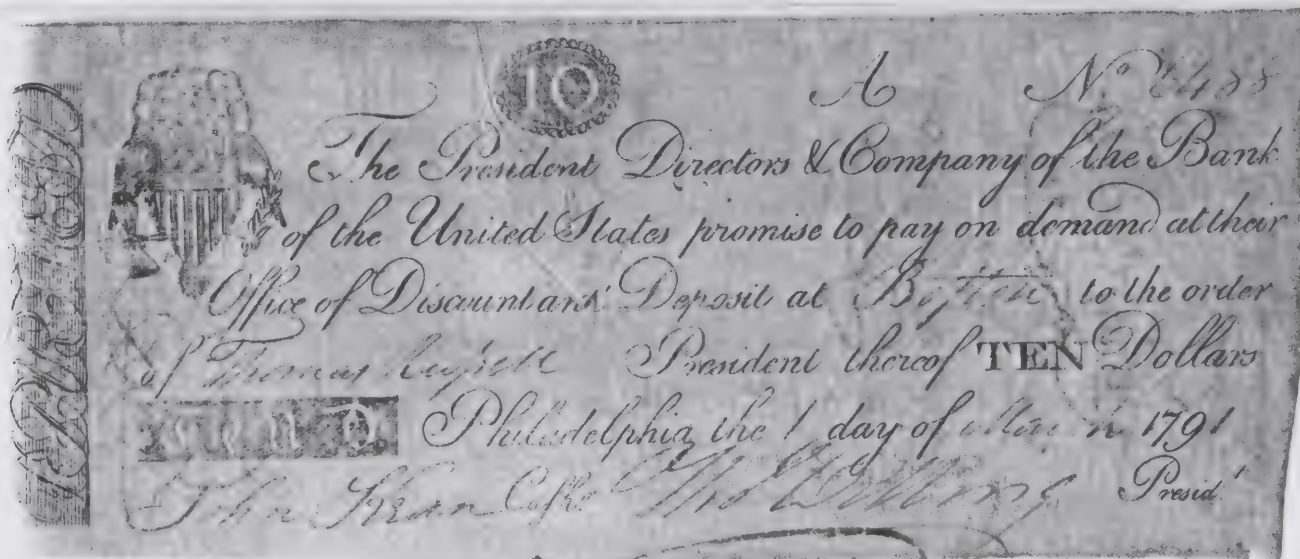 10 A No
The President Directors & Company of the Bank
of the United States promise to pay on demand at their
Office of Discount and Deposit at Boston to the order
of Thomas Russell President thereof TEN Dollars
Ten D Philadelphia, the 1 day of March 1791
John Kean Cashr Tho Willing Presidt